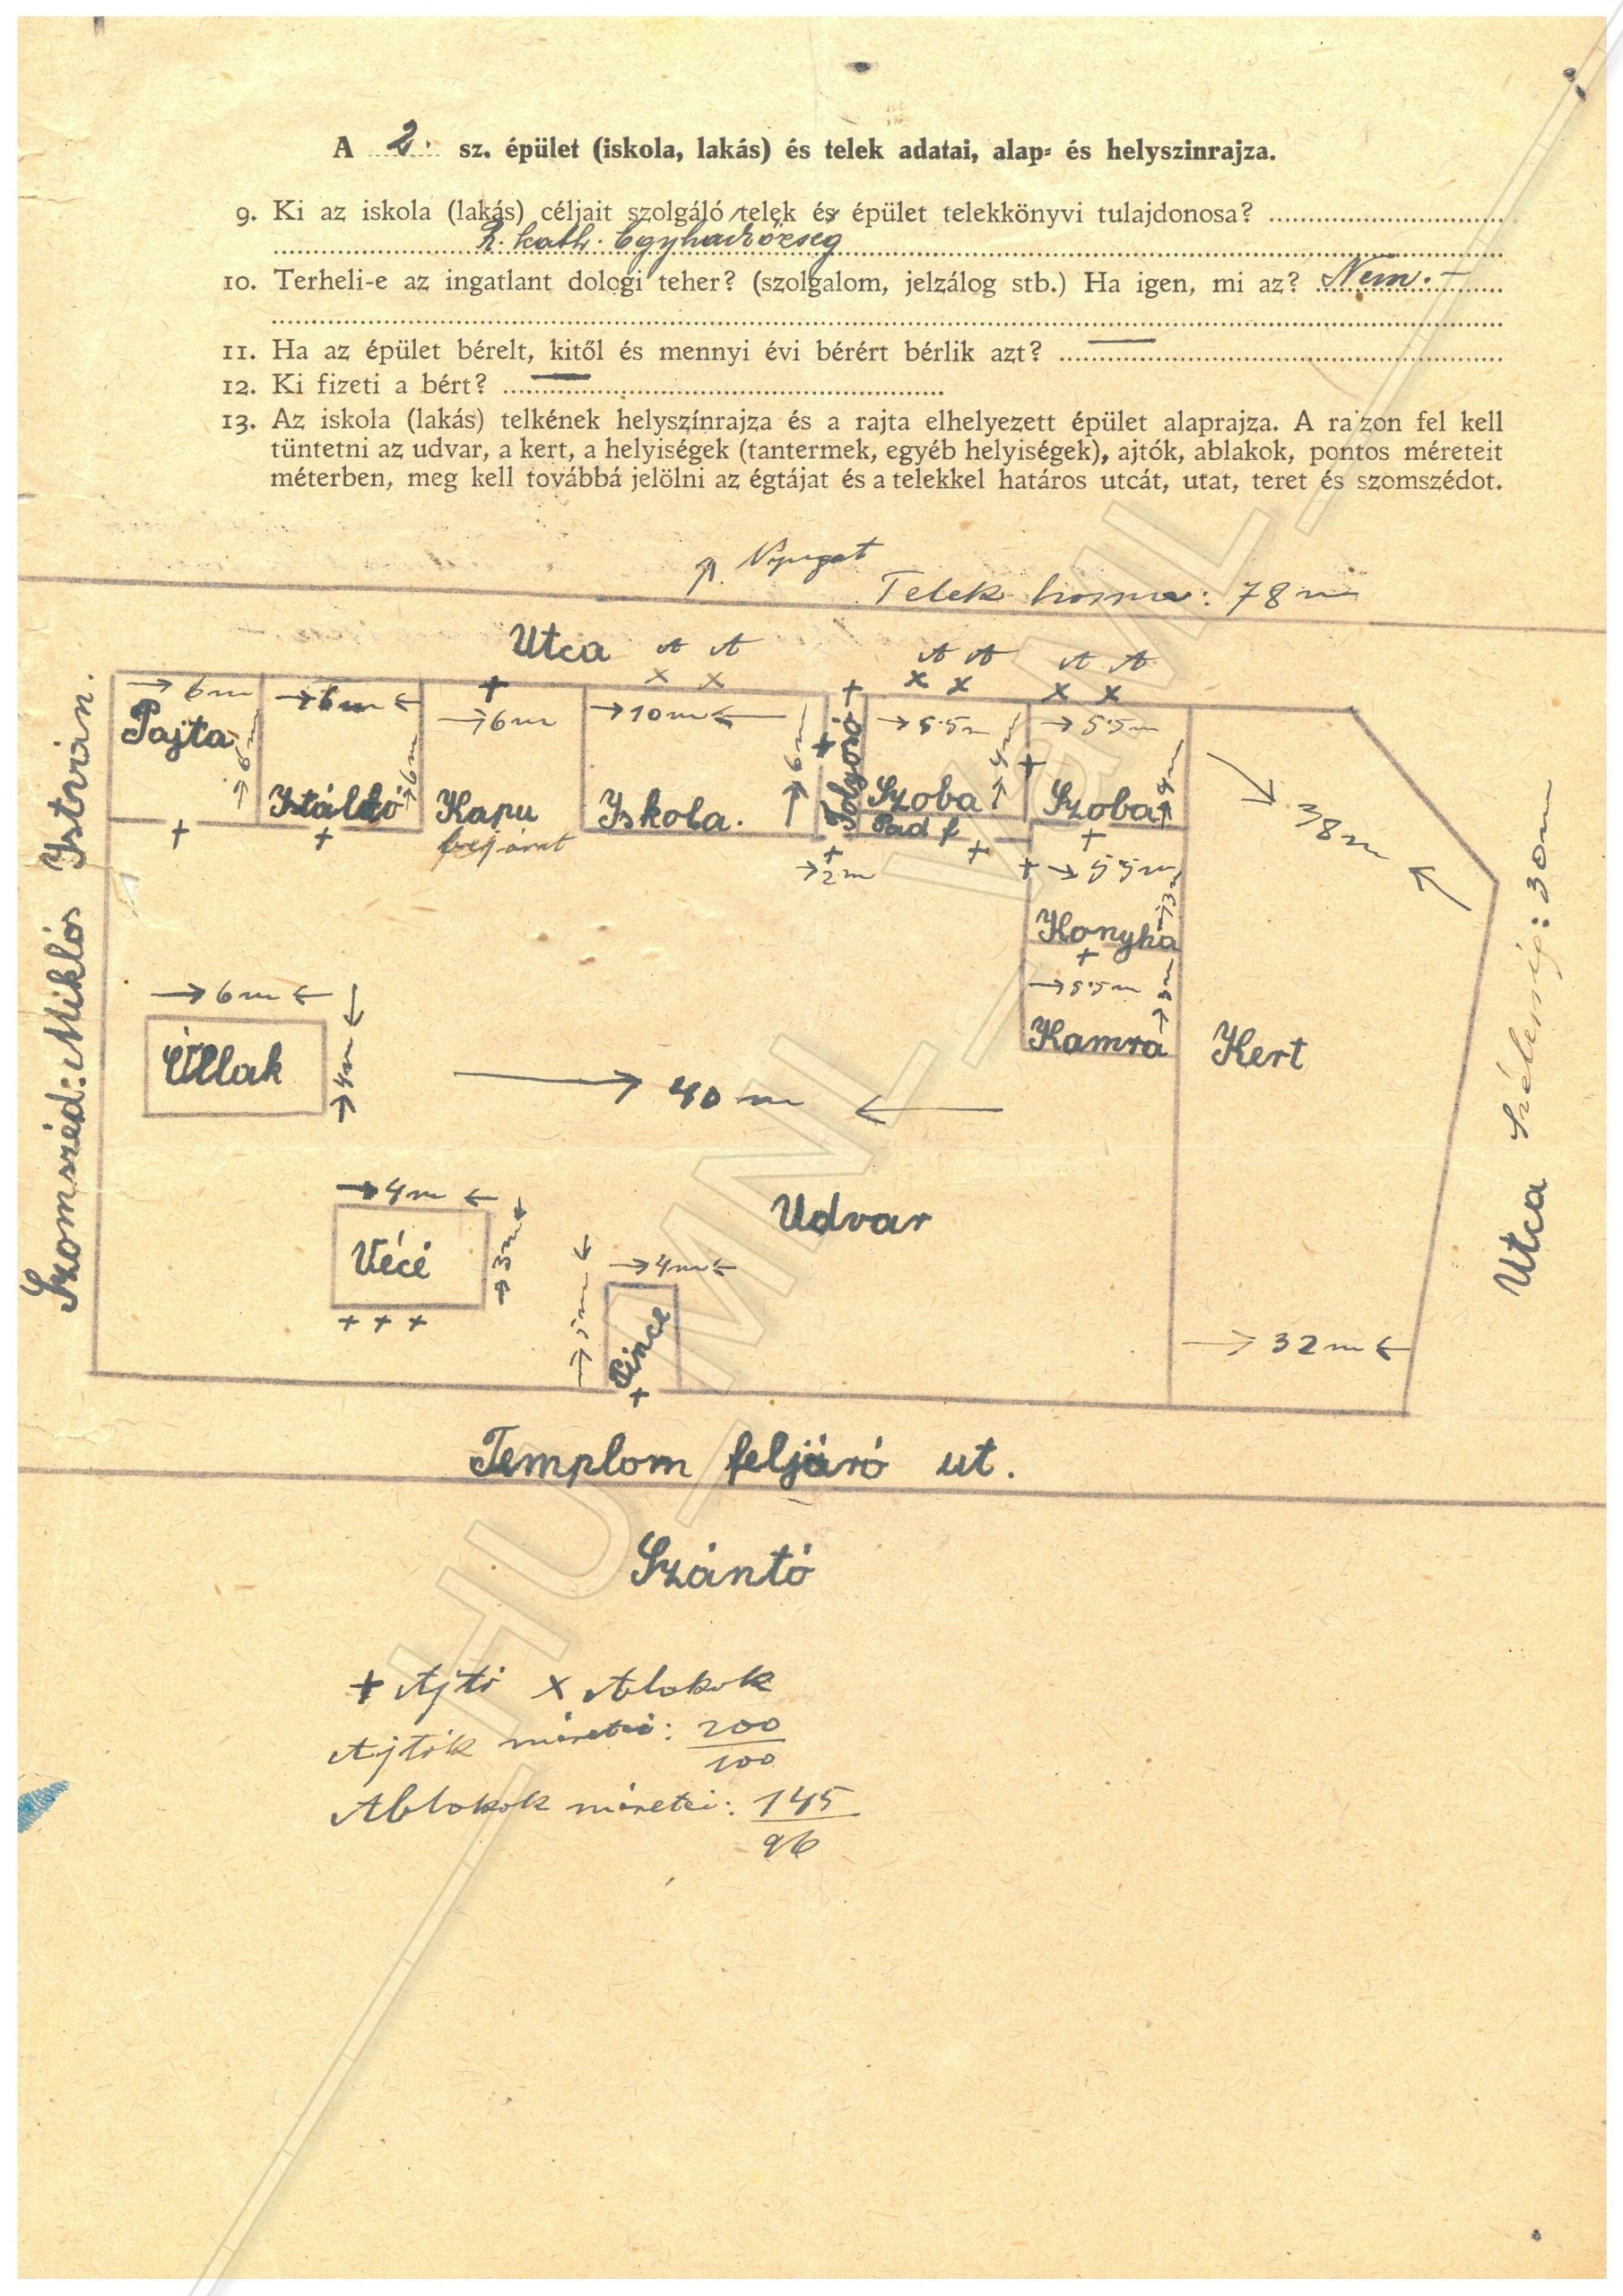 A 2. sz. épület (iskola, lakás) és telek adatai, alap- és helyszinrajza.
9. Ki az iskola (lakás) céljait szolgáló telek és épület telekkönyvi tulajdonosa?
R. kath. Egyházközség
10. Terheli-e az ingatlant dologi teher? (szolgalom, jelzálog stb.) Ha igen, mi az? Nem. –
11. Ha az épület bérelt, kitől és mennyi évi bérért bérlik azt? —
12. Ki fizeti a bért? —
13. Az iskola (lakás) telkének helyszínrajza és a rajta elhelyezett épület alaprajza. A rajzon fel kell
tüntetni az udvar, a kert, a helyiségek (tantermek, egyéb helyiségek), ajtók, ablakok, pontos méreteit
méterben, meg kell továbbá jelölni az égtájat és a telekkel határos utcát, utat, teret és szomszédot.
Nyugat
Telek hossza: 78 m
Utca A A A A A A
x x x x x x
6m 6m 6m 10m 5.5m 5.5m
Pajta 6m
Istálló 6m
Kapu
bejárat
Iskola. 6m
Folyosó
2m
Szoba 4m
Pad f
Szoba 4m
5.5m
Konyha 3m
5.5m
Kamra 3m
38m
Kert
Szomszéd: Miklós Ystván.
6m
Úllak 4m
40 m
4m
Vécé 3m
Udvar
4m
Pince
32m
Utca Szélesség: 30m
Templom feljáró ut.
Szántó
+ Ajtó x Ablakok
Ajtók méretei: 200
100
Ablakok méretei: 145
96
HU_MNL_VaML_